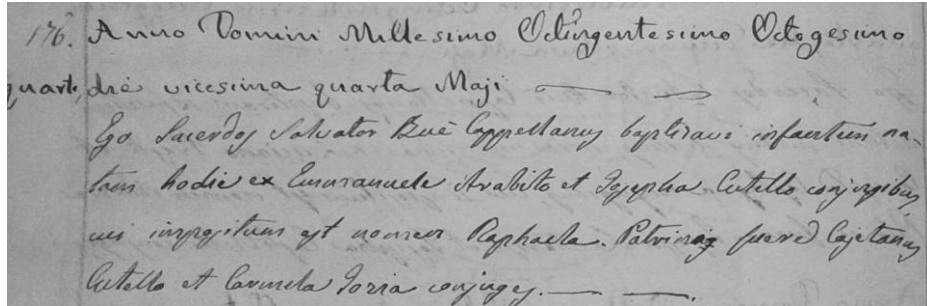 176. Anno Domini Millesimo Octingentesimo Octogesimo
quarto, die vicesima quarta Maji
Ego Sacerdos Salvator Buè Cappellanus baptizavi infantem na-
tam hodie ex Emmanuele Arabito et Josepha Cutello conjugibus,
cui impositum est nomen Raphaela. Patrini fuere Cajetanus
Cutello et Carmela Joria conjuges.